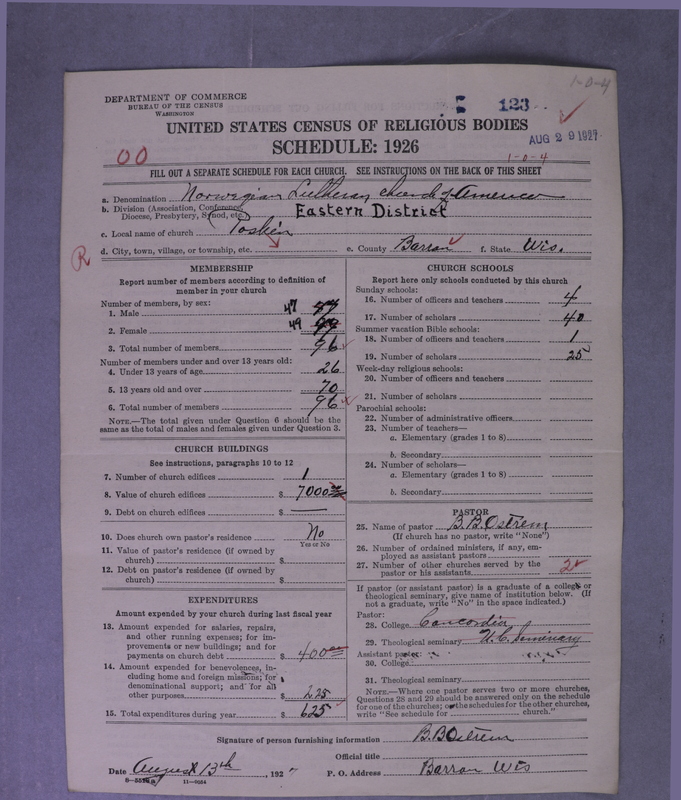 1-0-4
DEPARTMENT OF COMMERCE
BUREAU OF THE CENSUS
WASHINGTON
E 123
UNITED STATES CENSUS OF RELIGIOUS BODIES
AUG 29 1927
SCHEDULE: 1926
00
1-0-4
FILL OUT A SEPARATE SCHEDULE FOR EACH CHURCH. SEE INSTRUCTIONS ON THE BACK OF THIS SHEET
a. Denomination Norwegian Lutheran church of America
b. Division (Association, Conference, Diocese, Presbytery, Synod, etc.) Eastern District
c. Local name of church
R d. City, town, village, or township, etc. e. County Barron f. State Wis.
MEMBERSHIP
Report number of members according to definition of
member in your church
Number of members, by sex:
1. Male 47
2. Female 49
3. Total number of members 96
Number of members under and over 13 years old:
4. Under 13 years of age 26
5. 13 years old and over 70
6. Total number of members 96
NOTE.—The total given under Question 6 should be the
same as the total of males and females given under Question 3.
CHURCH BUILDINGS
See instructions, paragraphs 10 to 12
7. Number of church edifices 1
8. Value of church edifices $ 7000
9. Debt on church edifices $ —
10. Does church own pastor's residence No
Yes or No
11. Value of pastor's residence (if owned by
church) $
12. Debt on pastor's residence (if owned by
church) $
EXPENDITURES
Amount expended by your church during last fiscal year
13. Amount expended for salaries, repairs,
and other running expenses; for im-
provements or new buildings; and for
payments on church debt $ 400
14. Amount expended for benevolences, in-
cluding home and foreign missions; for
denominational support; and for all
other purposes $ 225
15. Total expenditures during year $ 625
CHURCH SCHOOLS
Report here only schools conducted by this church
Sunday schools:
16. Number of officers and teachers 4
17. Number of scholars 40
Summer vacation Bible schools:
18. Number of officers and teachers 1
19. Number of scholars 25
Week-day religious schools:
20. Number of officers and teachers
21. Number of scholars
Parochial schools:
22. Number of administrative officers
23. Number of teachers—
a. Elementary (grades 1 to 8)
b. Secondary
24. Number of scholars—
a. Elementary (grades 1 to 8)
b. Secondary
PASTOR
25. Name of pastor B. B. Ostrem
(If church has no pastor, write "None")
26. Number of ordained ministers, if any, em-
ployed as assistant pastors
27. Number of other churches served by the
pastor or his assistants 2
If pastor (or assistant pastor) is a graduate of a college or
theological seminary, give name of institution below. (If
not a graduate, write "No" in the space indicated.)
Pastor:
28. College Concordia
29. Theological seminary U.C. Seminary
Assistant pastor:
30. College
31. Theological seminary
NOTE.—Where one pastor serves two or more churches,
Questions 28 and 29 should be answered only on the schedule
for one of the churches; on the schedules for the other churches,
write "See schedule for church."
Signature of person furnishing information B.B Ostrem
Official title
Date August 13th, 1927 P. O. Address Barron Wis
11-9054